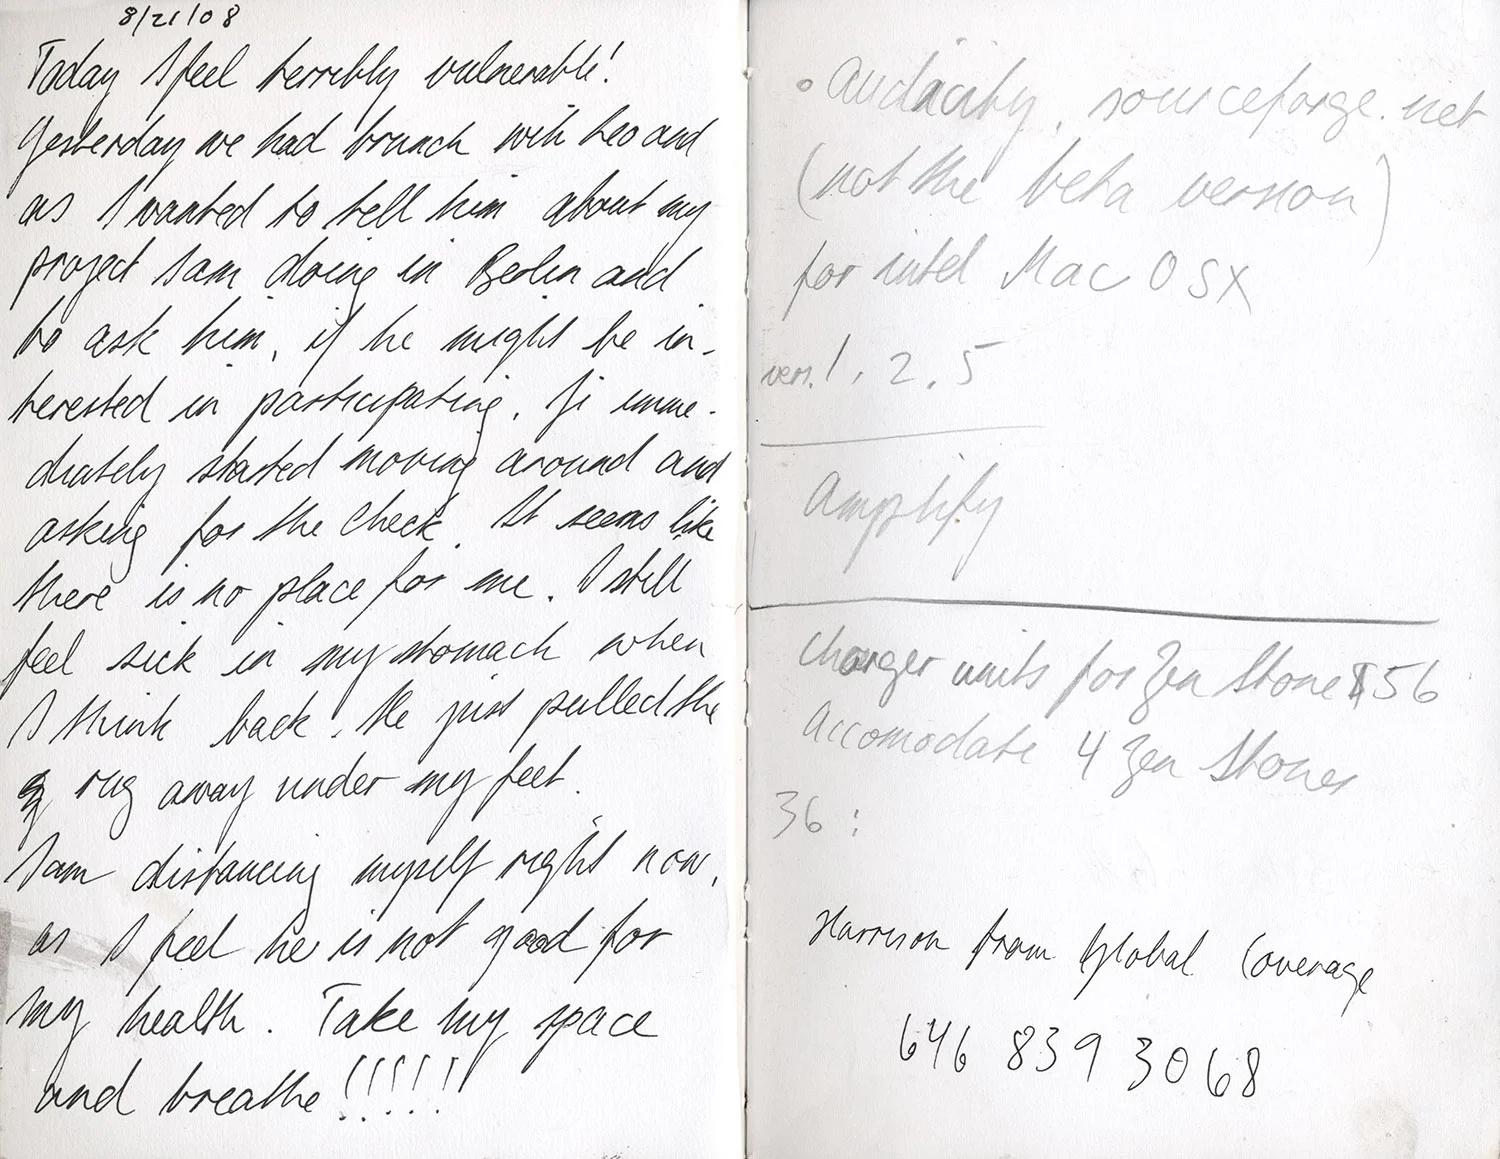 8/21/08
Today I feel terribly vulnerable!
Yesterday we had brunch with Leo and
as I wanted to tell him about my
project I am doing in Berlin and
to ask him, if he might be in-
terested in participating, Ji imme-
diately started moving around and
asking for the check. It seems like
there is no place for me. I still
feel sick in my stomach when
I think back. He just pulled the
rug away under my feet.
I am distancing myself right now,
as I feel he is not good for
my health. Take my space
and breathe!!!!!!
• Audacity, sourceforge.net
(not the beta version)
for intel Mac OSX
vers. 1.2.5
Amplify
Charger units for Zen Stone $56
Accomodate 4 Zen Stones
36:
Harrison from Global Coverage
646 839 3068